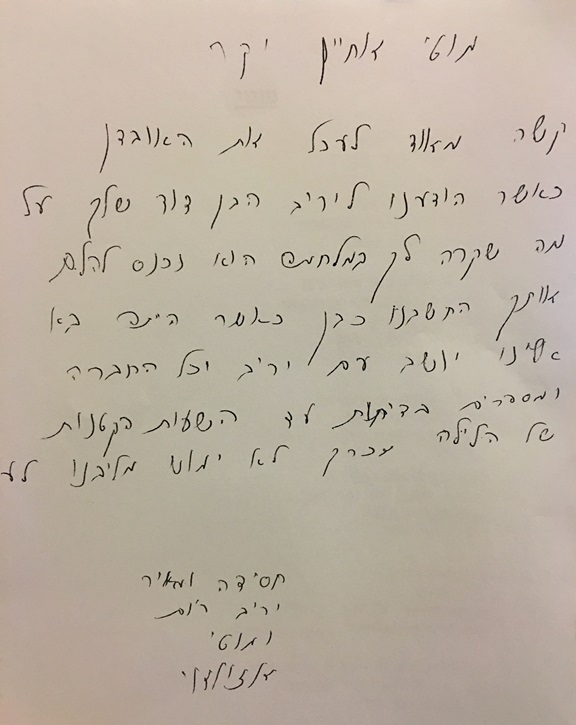 מוטי אוחיין יקר
קשה מאוד לעכל את האובדן
כאשר הודענו ליריב הבן דוד שלך על
מה שקרה לך במלחמה הוא נכנס להלם
אותך החשבנו כבן כאשר היית בא
אלינו יושב עם יריב וכל החברה
ומספרים בדיחות עד השעות הקטנות
של הלילה זכרך לא ימוש מליבנו לעד
חסידה ומאיר
יריב רות
ומוטי